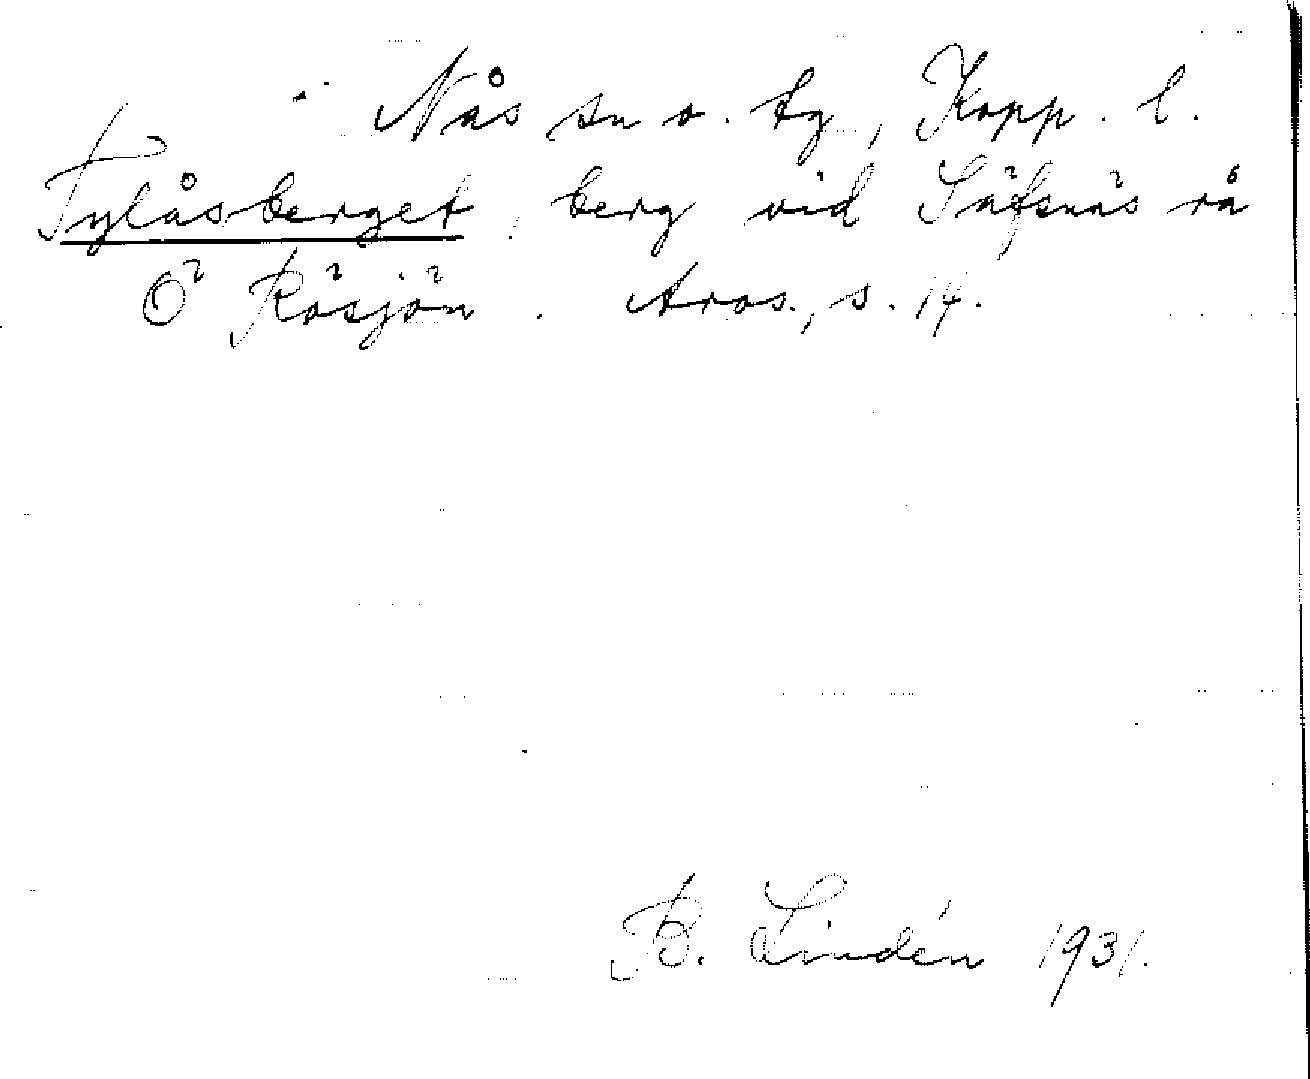 Nås sn o. tg, Kopp. l.
Tylåsberget, berg vid Säfsnäs rå
Ö Rösjön. Aros., s. 14.
B. Lindén 1931.